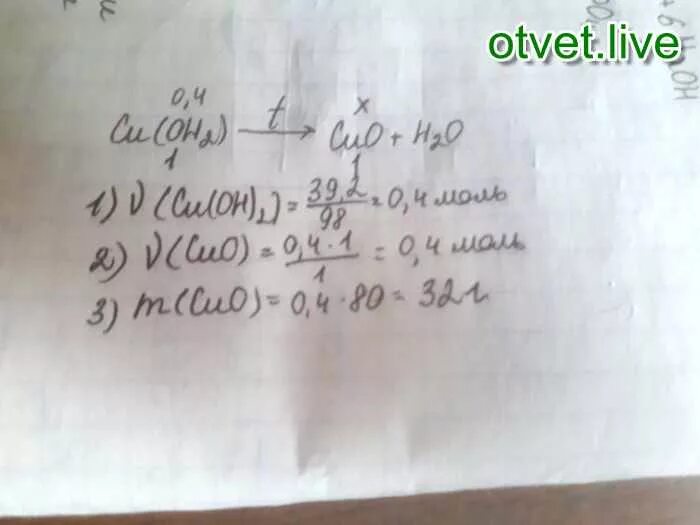 otvet.live
0,4 x
Cu(OH2) —t→ CuO + H2O
1 1
1) ν(Cu(OH)2) = 39,2/98 = 0,4 моль
2) ν(CuO) = 0,4·1/1 = 0,4 моль
3) m(CuO) = 0,4·80 = 32г